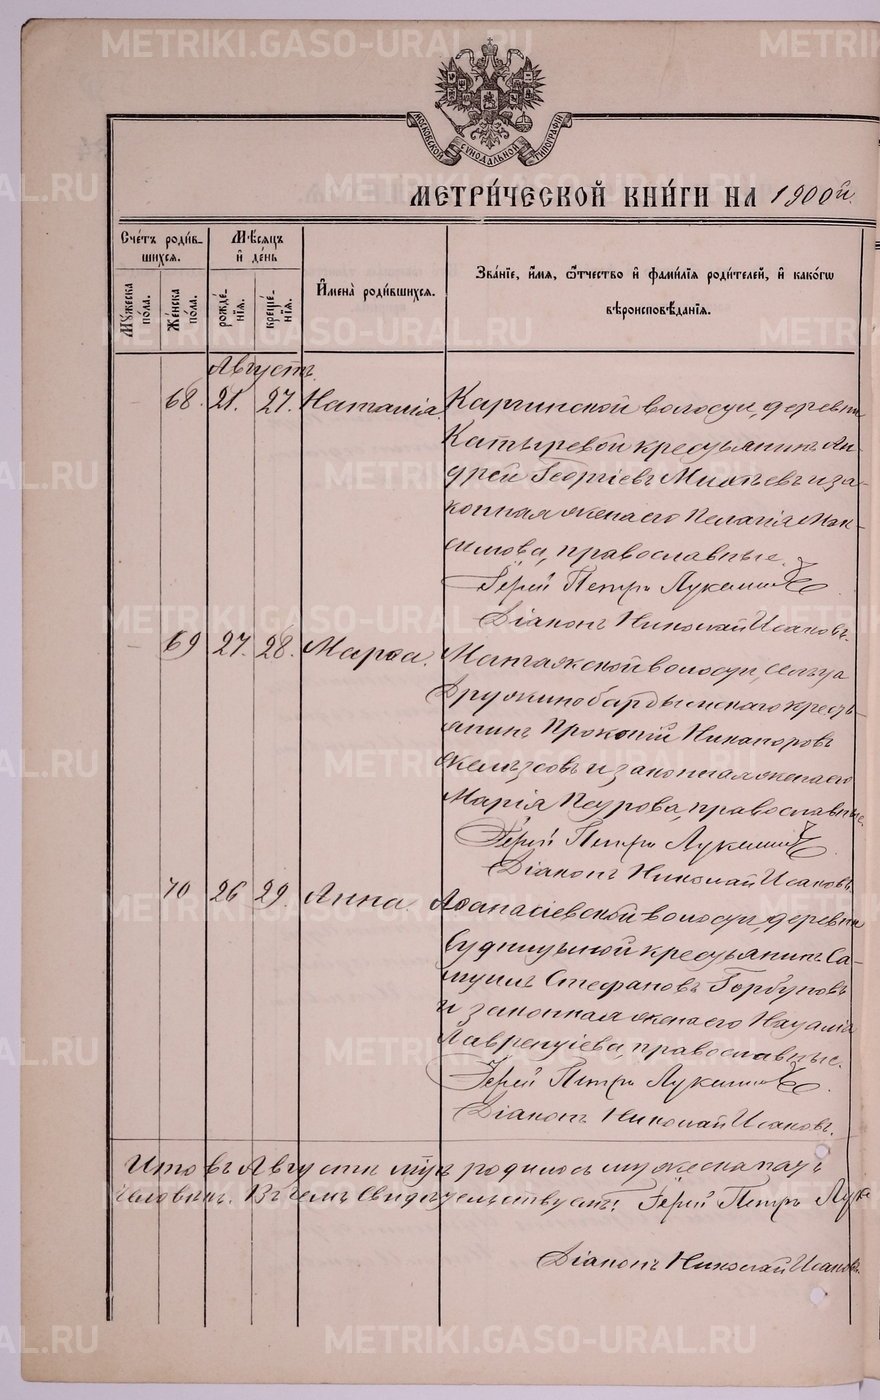 METRIKI.GASO-URAL.RU
МОСКОВСКОЙ СУНОДАЛЬНОЙ ТИПОГРАФІИ
МЕТРИ́ЧЕСКОЙ КНИ́ГИ НА 1900й.
Сче́тъ роди́вшихся.
Мѣ́сяцъ и҆ де́нь
Мꙋ́жеска по́ла.
Же́нска по́ла.
рожде́нїѧ.
креще́нїѧ.
И҆мена̀ роди́вшихсѧ.
Зва́нїе, и҆́мѧ, ѻ҆́тчество и҆ фами́лїѧ роди́телей, и҆ како́гѡ
вѣроисповѣ́данїѧ.
Августъ.
68. 21. 27. Наталія. Каргинской волости, деревни
Катыревой крестьянинъ Ан-
дрей Георгіевъ и за-
конная жена его Пелагія Мак-
симова, православные.
Іерей Петръ
Діаконъ Николай Исаковъ.
69 27. 28. Марѳа. волости, села
крестья-
нинъ Прокопій Никаноровъ
и законная жена его
Марія Петрова, православные.
Іерей Петръ
Діаконъ Николай Исаковъ
70 26 29. Анна. Аѳанасіевской волости, деревни
крестьянинъ Са-
муилъ Стефановъ Горбуновъ
и законная жена его Наталія
Лаврентіева, православные.
Іерей Петръ
Діаконъ Николай Исаковъ.
Итого въ Августѣ родилось мужеска
человѣкъ. Въ чемъ свидѣтельствуетъ: Іерей Петръ
Діаконъ Николай Исаковъ.